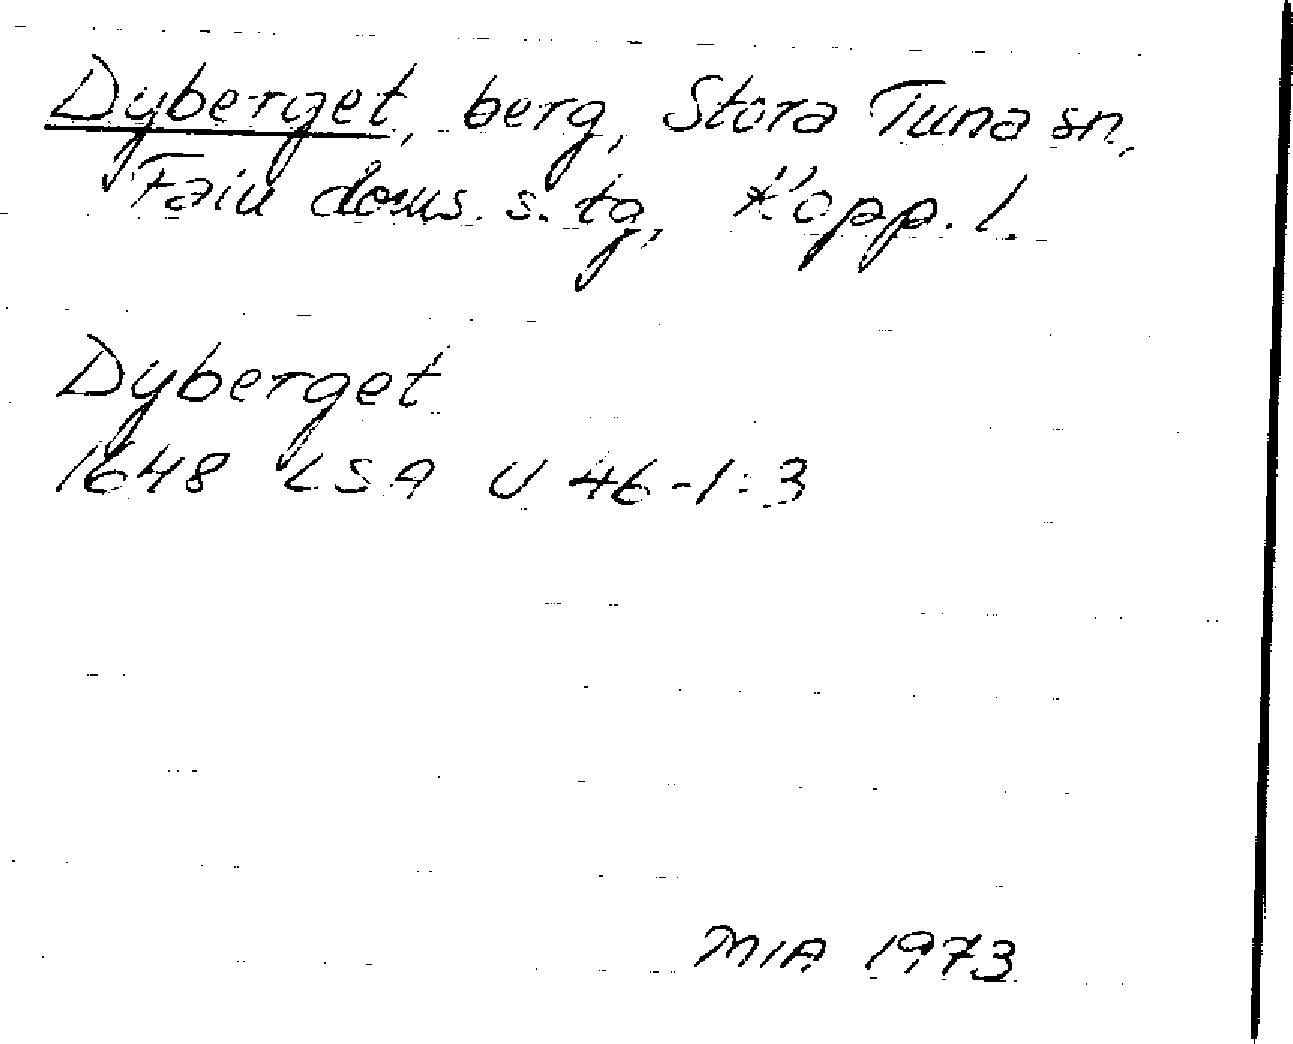 Dyberget, berg, Stora Tuna sn,
Falu doms. s. tg, Kopp. l.
Dyberget
1648 LSA U 46-1:3
MIA 1973